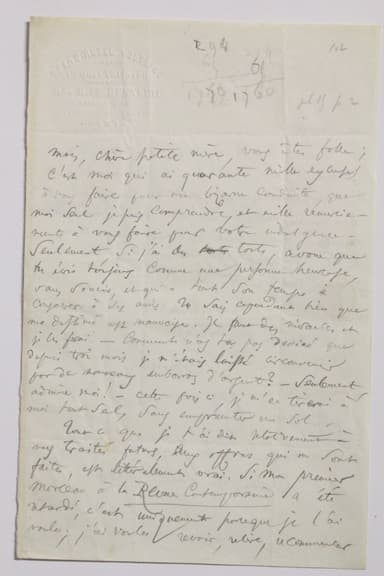 294
61
1760
1760
112
pl 15 p 2
mais, chère petite mère, vous êtes folle ;
c'est moi qui ai quarante mille excuses
à vous faire pour ma bizarre conduite, que
moi seul je puis comprendre, et mille remercie-
ments à vous faire pour votre indulgence.
Seulement si j'ai des torts, avoue que
tu écris toujours comme une personne heureuse,
sans soucis, et qui a tout son temps à
consacrer à ses amis. Tu sais cependant bien que
ma destinée est mauvaise. Je
je les ferai — Comment n'as-tu pas deviné que
depuis trois mois je m'étais laissé circonvenir
par de nouveaux embarras d'argent ? — Seulement
admire moi ! — cette fois-ci, je m'en tirerai à
moi tout seul, sans emprunter un sol.
Tout ce que je t'ai dit relativement à
mes traités futurs, aux offres qui me sont
faites, est littéralement vrai. Si mon premier
morceau à la Revue Contemporaine a été
retardé, c'est uniquement parce que je l'ai
voulu ; j'ai voulu revoir, relire, recommencer